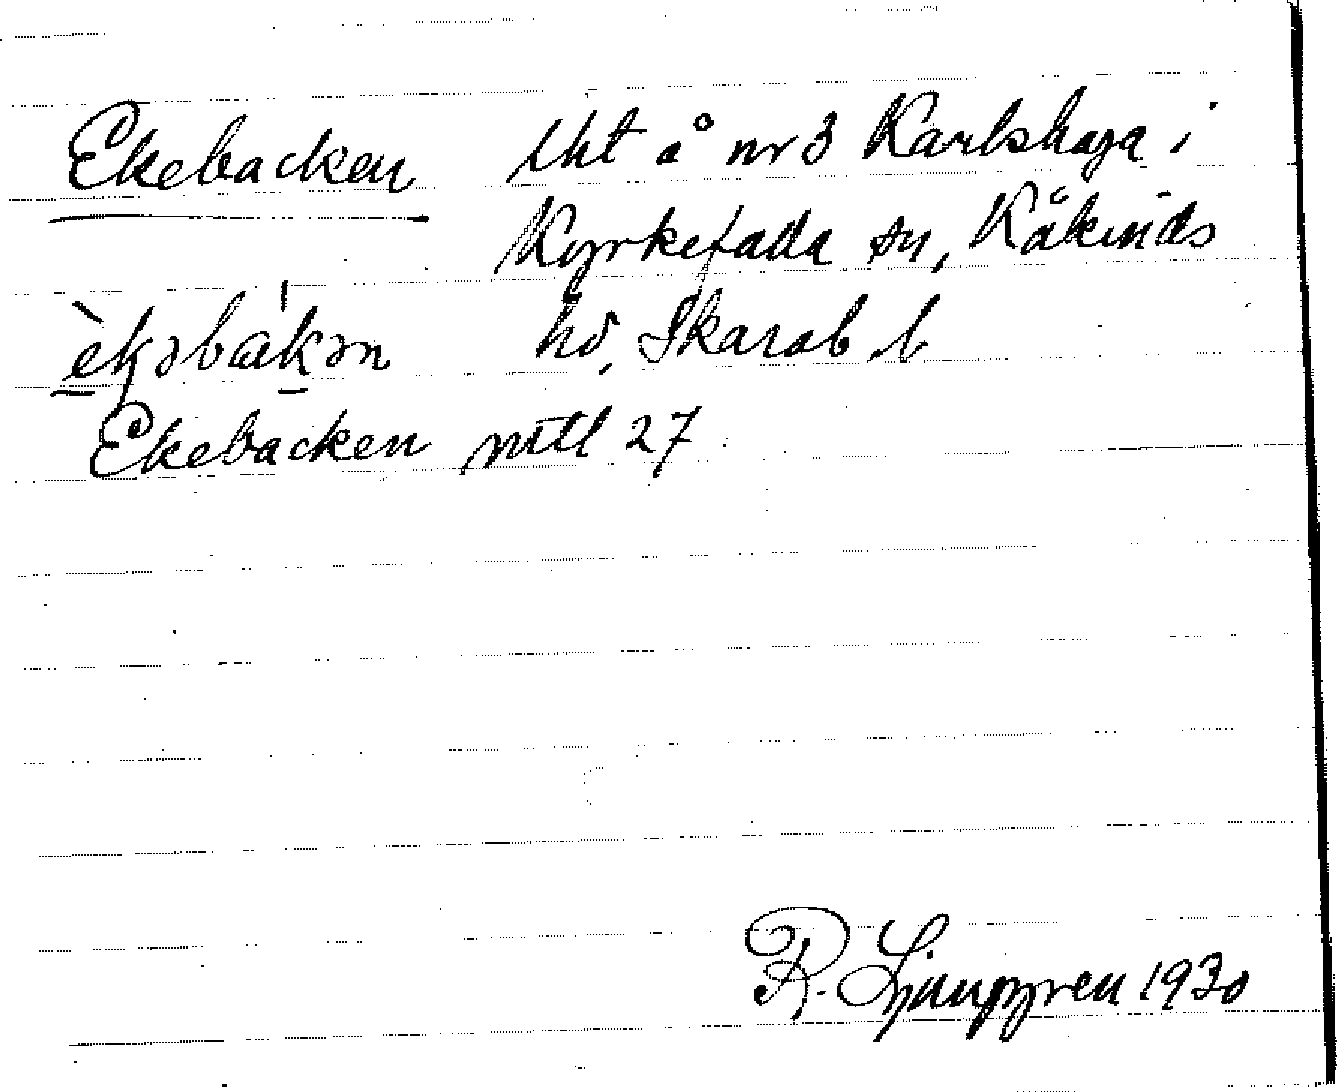 Ekebacken Uht å nr 3 Karlshaga i
Kyrkefalla sn, Kåkinds
èkəbák̠ən hd, Skarab. l.
Ekebacken mtl 27
R. Ljunggren 1930